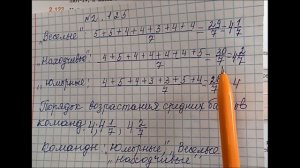 №2.125
„Веселые" 5+5+4+4+3+4+4/7 = 29/7 = 4 1/7
„Находчивые" 4+5+4+4+4+4+5/7 = 30/7 = 4 2/7
„Юморные" 4+5+4+3+3+5+4/7 = 28/7 = 4
Порядок возрастания средних баллов
команд: 4; 4 1/7; 4 2/7
Команды „Юморные", „Веселые"
„Находчивые"